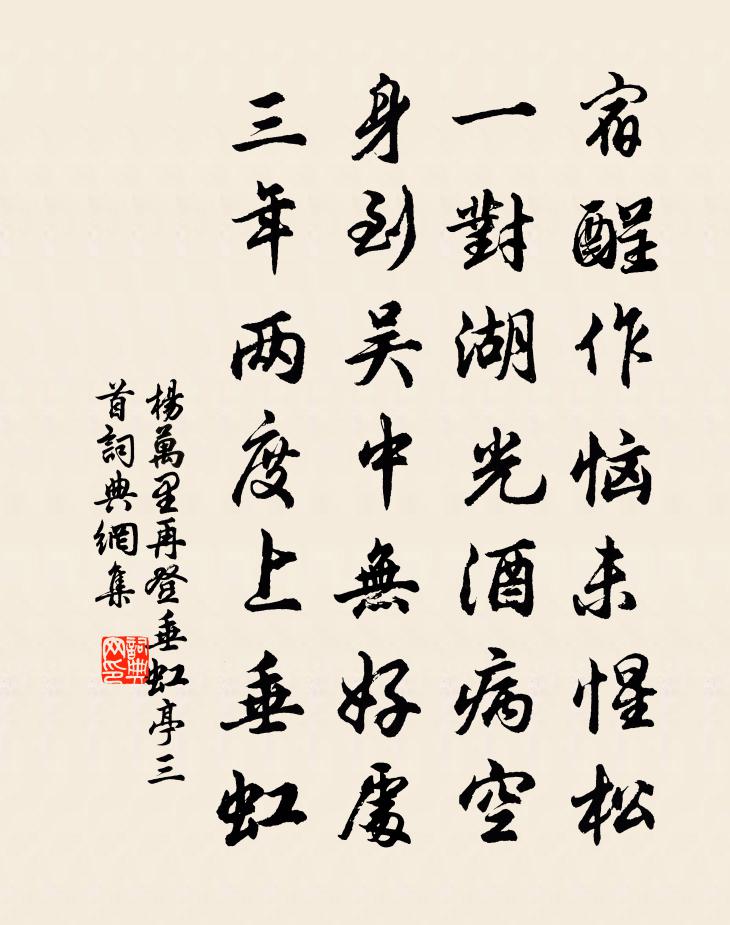 宿酲作恼未惺松
一對湖光酒病空
身到吴中無好處
三年两度上垂虹
楊萬里再登垂虹亭三
首詞典網集
詞典网印